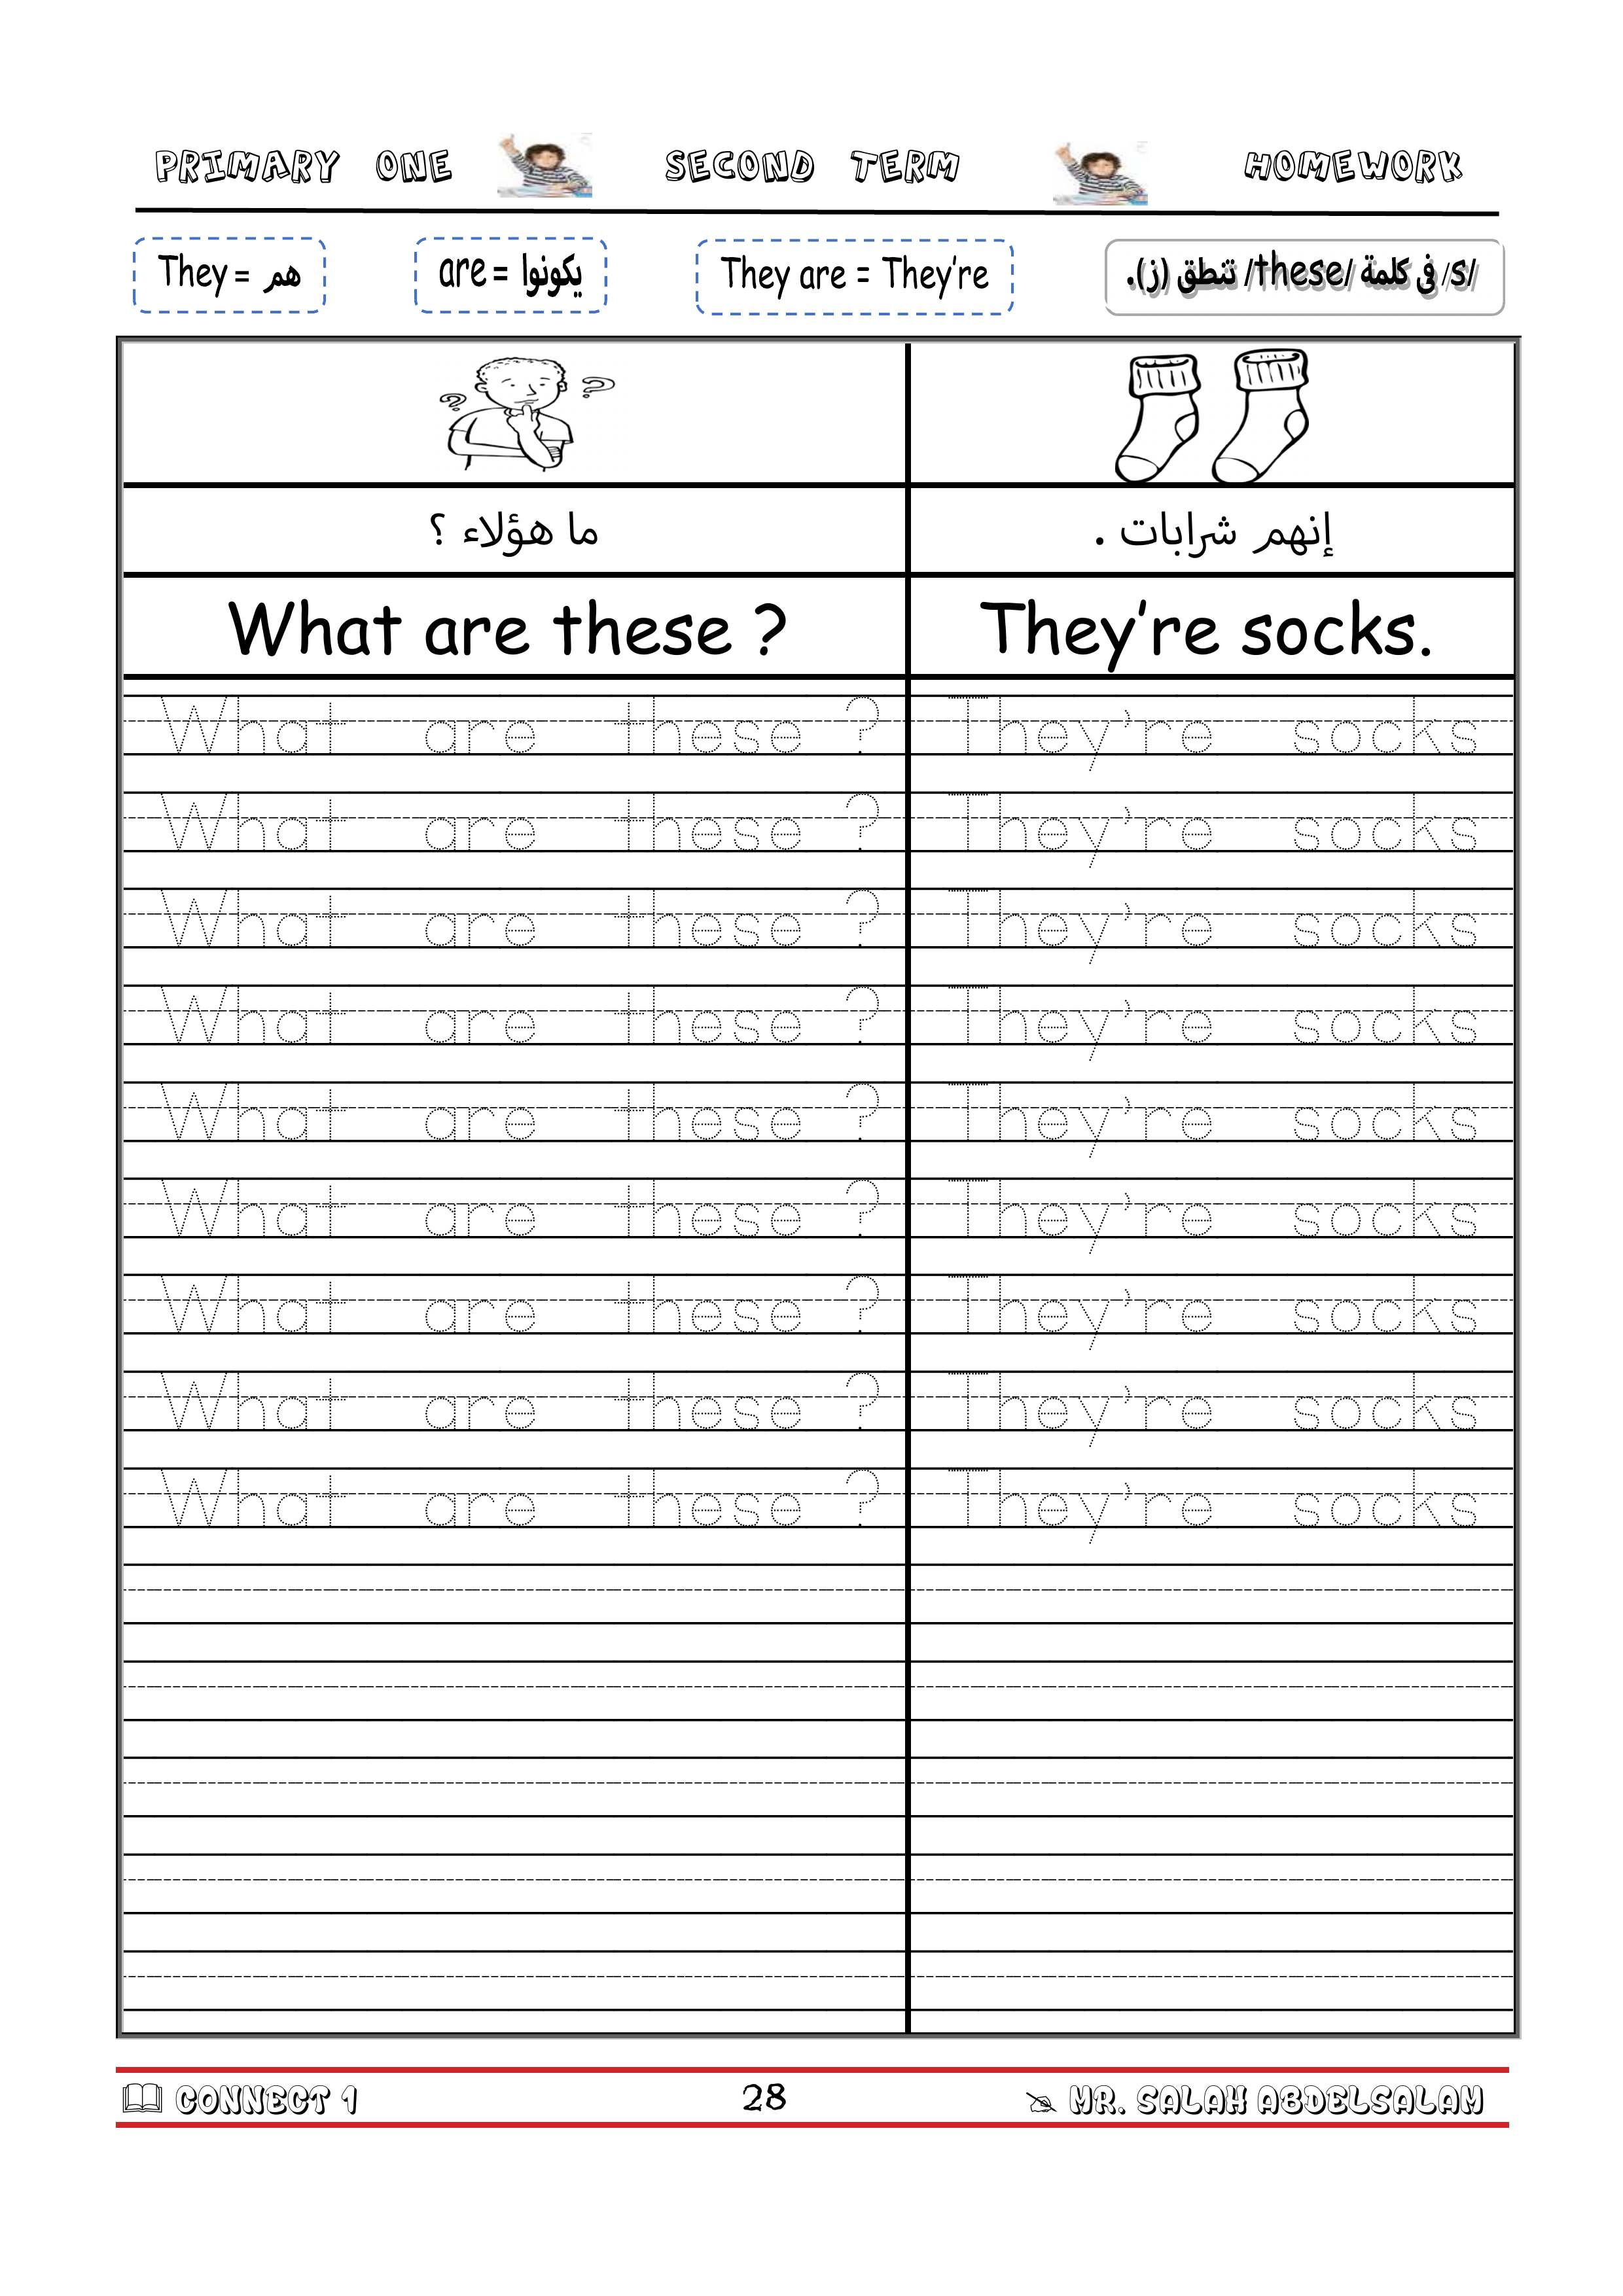 PRIMARY ONE SECOND TERM HOMEWORK
They = هم are = يكونوا They are = They're /s/ فى كلمة /these/ تنطق (ز).
? ?
ما هؤلاء ؟ إنهم شرابات .
What are these ? They're socks.
What are these ? They're socks
What are these ? They're socks
What are these ? They're socks
What are these ? They're socks
What are these ? They're socks
What are these ? They're socks
What are these ? They're socks
What are these ? They're socks
What are these ? They're socks
CONNECT 1 28 MR. SALAH ABDELSALAM